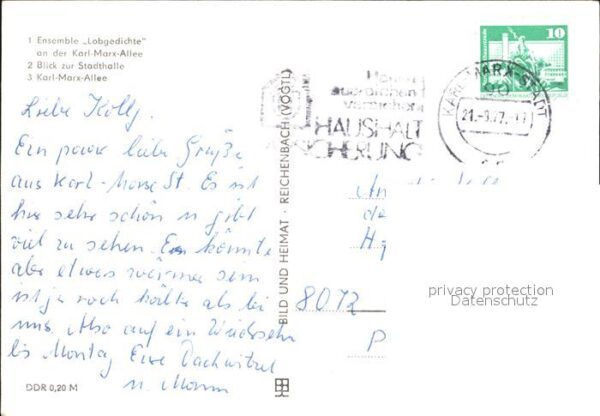 1 Ensemble „Lobgedichte"
an der Karl-Marx-Allee
2 Blick zur Stadthalle
3 Karl-Marx-Allee
10
KARL-MARX-STADT
90
21.-9.77.-17
HAUSHALT
SICHERUNG
Liebe
Ein paar liebe Grüße
aus Karl-Marx St. Es ist
hier sehr schön u gibt
viel zu sehen. Es könnte
aber etwas wärmer sein
ist ja noch kälter als bei
uns. Also auf ein Wiedersehn
bis Montag Eure
u.
BILD UND HEIMAT · REICHENBACH (VOGTL)
An
de
H
8072
P
privacy protection
Datenschutz
DDR 0,20 M